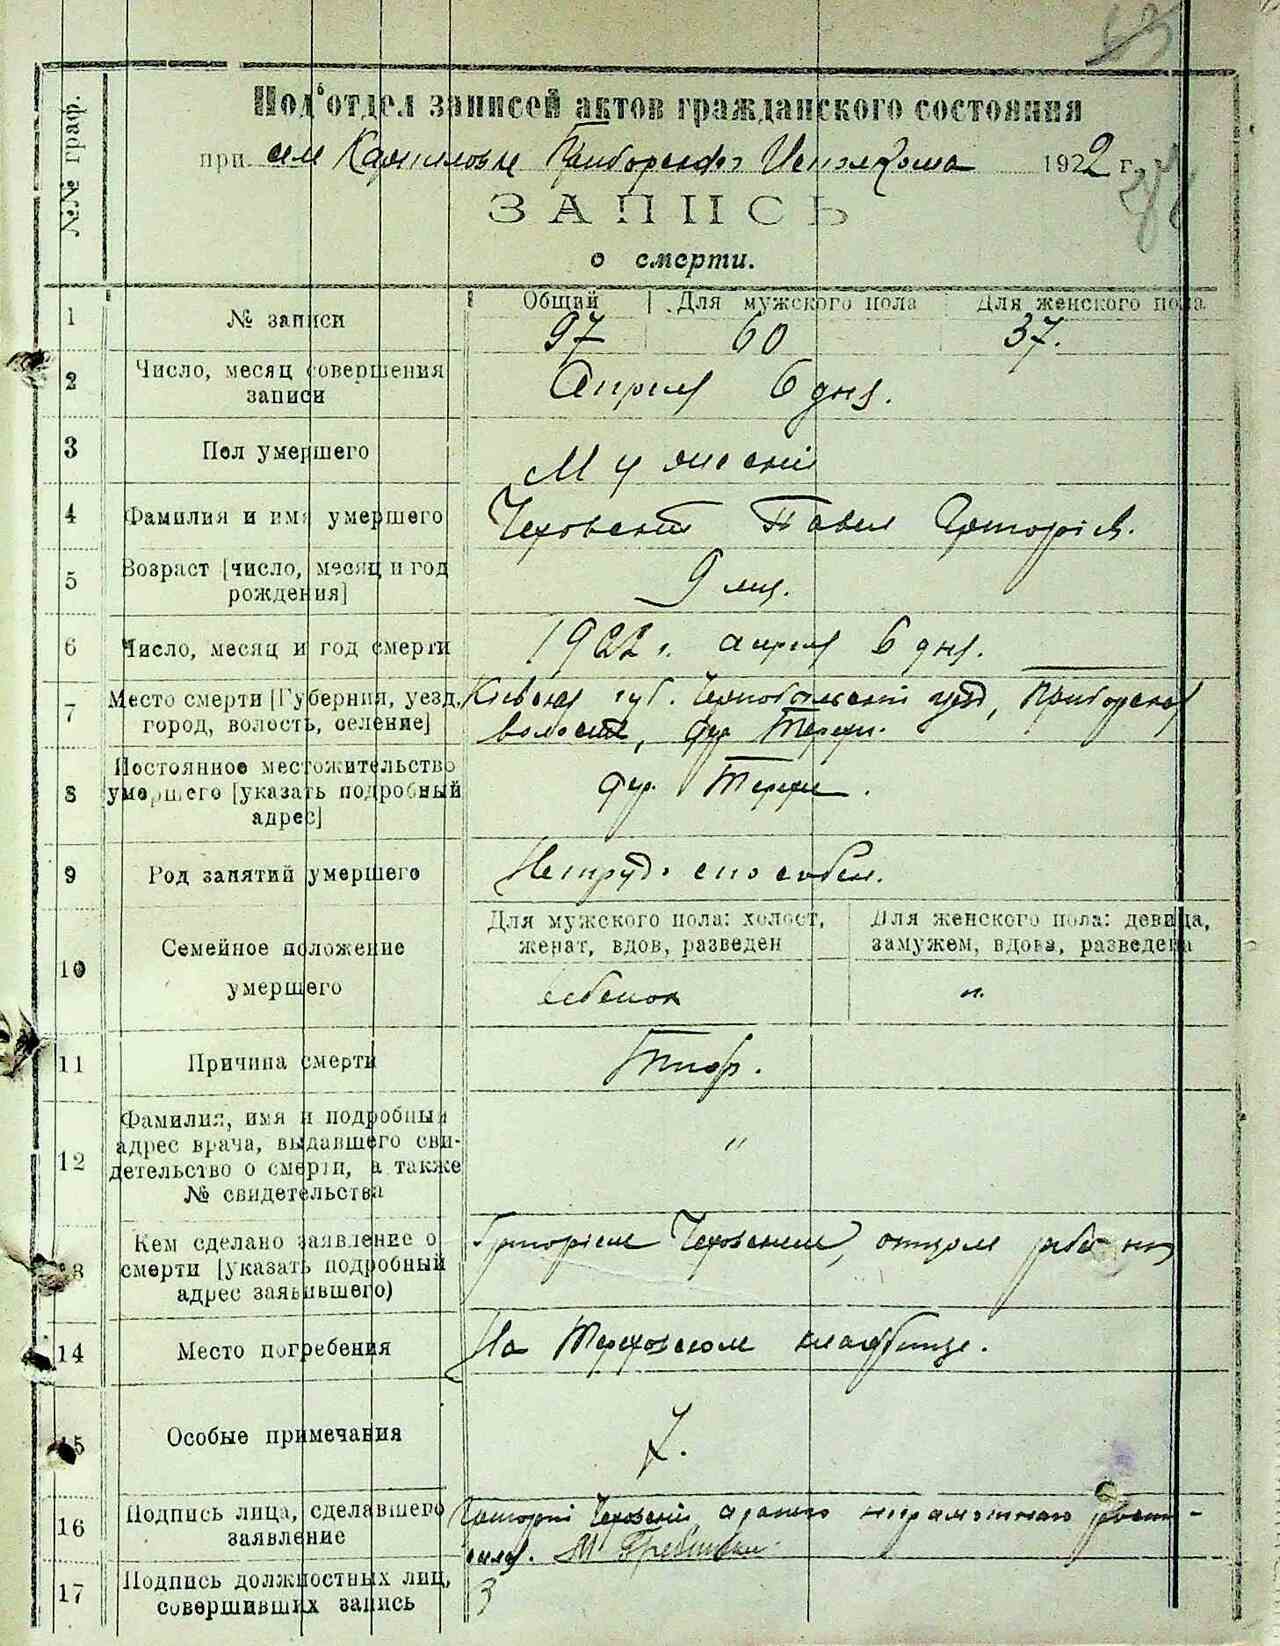 63
№№ граф.
Под'отдел записей актов гражданского состояния
при Исполкома 1922 г.
ЗАПИСЬ
о смерти.
1 № записи
Общий Для мужского пола Для женского пола
97 60 37.
2 Число, месяц совершения записи
Апреля 6 дня.
3 Пол умершего
Мужеский
4 Фамилия и имя умершего
Чеховский Павел Григоріев.
5 Возраст [число, месяц и год рождения]
9 мц.
6 Число, месяц и год смерти
1922 г. апреля 6 дня.
7 Место смерти [Губерния, уезд, город, волость, селение]
Кіевская губ. Чернобыльскій уезд, Приборская
волость, дер. Терехи.
8 Постоянное местожительство умершего [указать подробный адрес]
дер. Терехи.
9 Род занятий умершего
Нетрудоспособен.
10 Семейное положение умершего
Для мужского пола: холост, женат, вдов, разведен
Для женского пола: девица, замужем, вдова, разведена
ребенок
11 Причина смерти
Тиф.
12 Фамилия, имя и подробный адрес врача, выдавшего свидетельство о смерти, а также № свидетельства
"
13 Кем сделано заявление о смерти [указать подробный адрес заявившего)
Григоріем Чеховским, отцом
14 Место погребения
На Тереховском кладбище.
15 Особые примечания
16 Подпись лица, сделавшего заявление
Григорій Чеховский а за него неграмотного роспи-
сался.
17 Подпись должностных лиц, совершивших запись
З